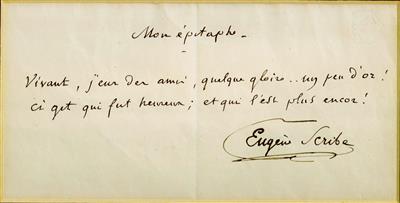 Mon épitaphe_
Vivant, j'eus des amis, quelque gloire.. un peu d'or!
ci git qui fut heureux; et qui l'est plus encor!
Eugène Scribe